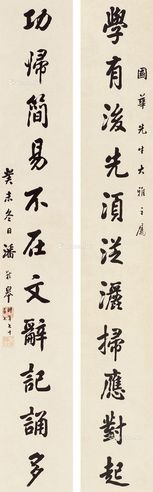 國華先生大雅之屬
學有後先須從灑掃應對起
功歸簡易不在文辭記誦多
癸未冬日潘齡皋